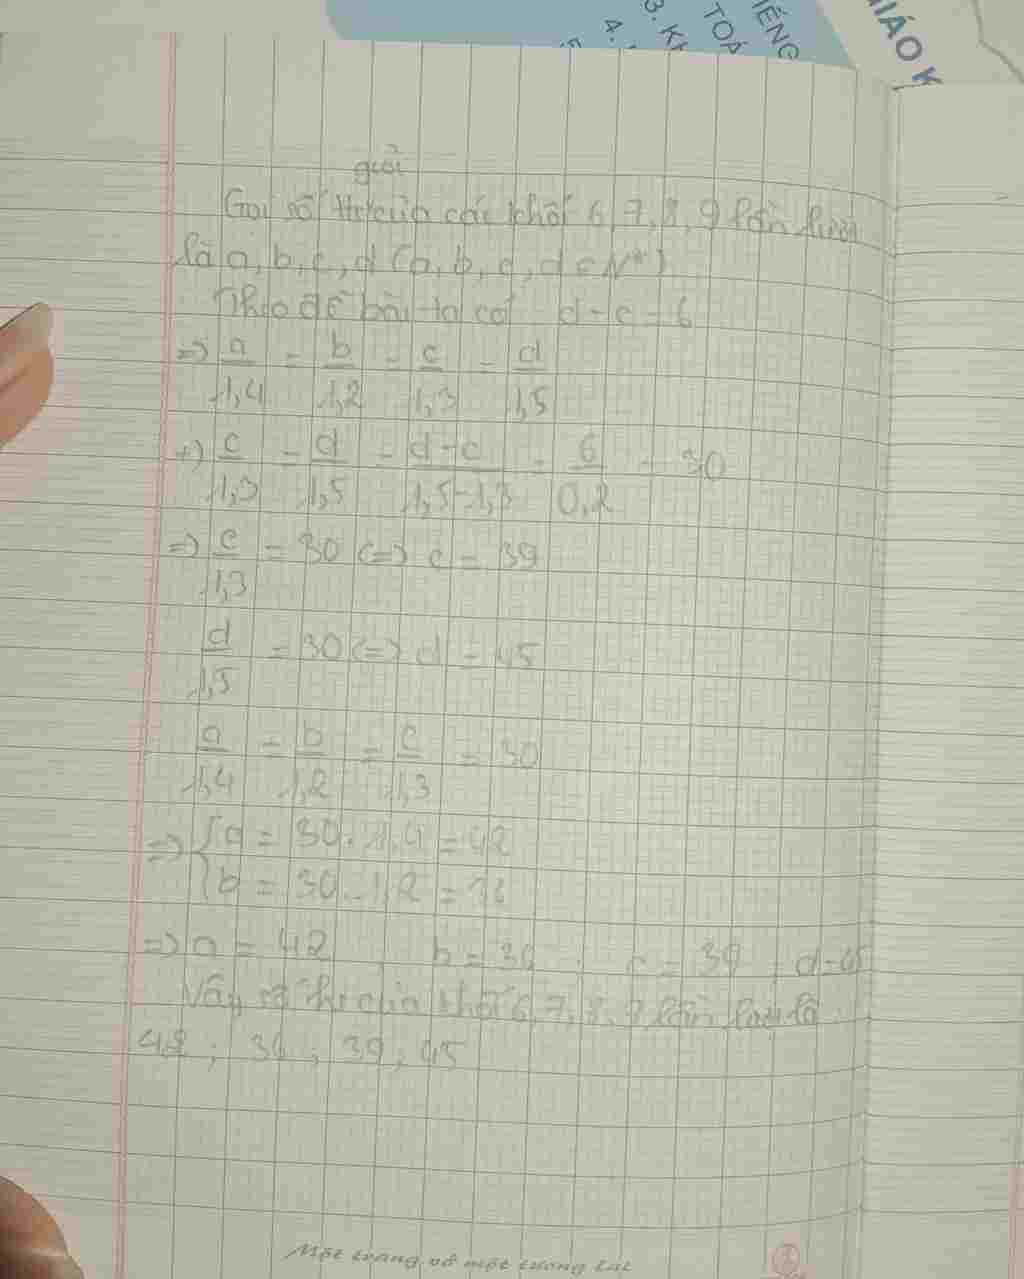 TIẾNG
TOÁ
3. KH
4.
GIÁO K
giải
Gọi số hs của các khối 6, 7, 8, 9 lần lượt
là a, b, c, d (a, b, c, d ∈ N*)
Theo đề bài ta có d - c = 6
=> a/1,4 = b/1,2 = c/1,3 = d/1,5
+) c/1,3 = d/1,5 = d-c/1,5-1,3 = 6/0,2 = 30
=> c/1,3 = 30 <=> c = 39
d/1,5 = 30 <=> d = 45
a/1,4 = b/1,2 = c/1,3 = 30
=> { a = 30 . 1,4 = 42
b = 30 . 1,2 = 36
=> a = 42 , b = 36 ; c = 39 , d = 45
Vậy số hs của khối 6, 7, 8, 9 lần lượt là
42 ; 36 ; 39 ; 45
Một trang vở một tương lai